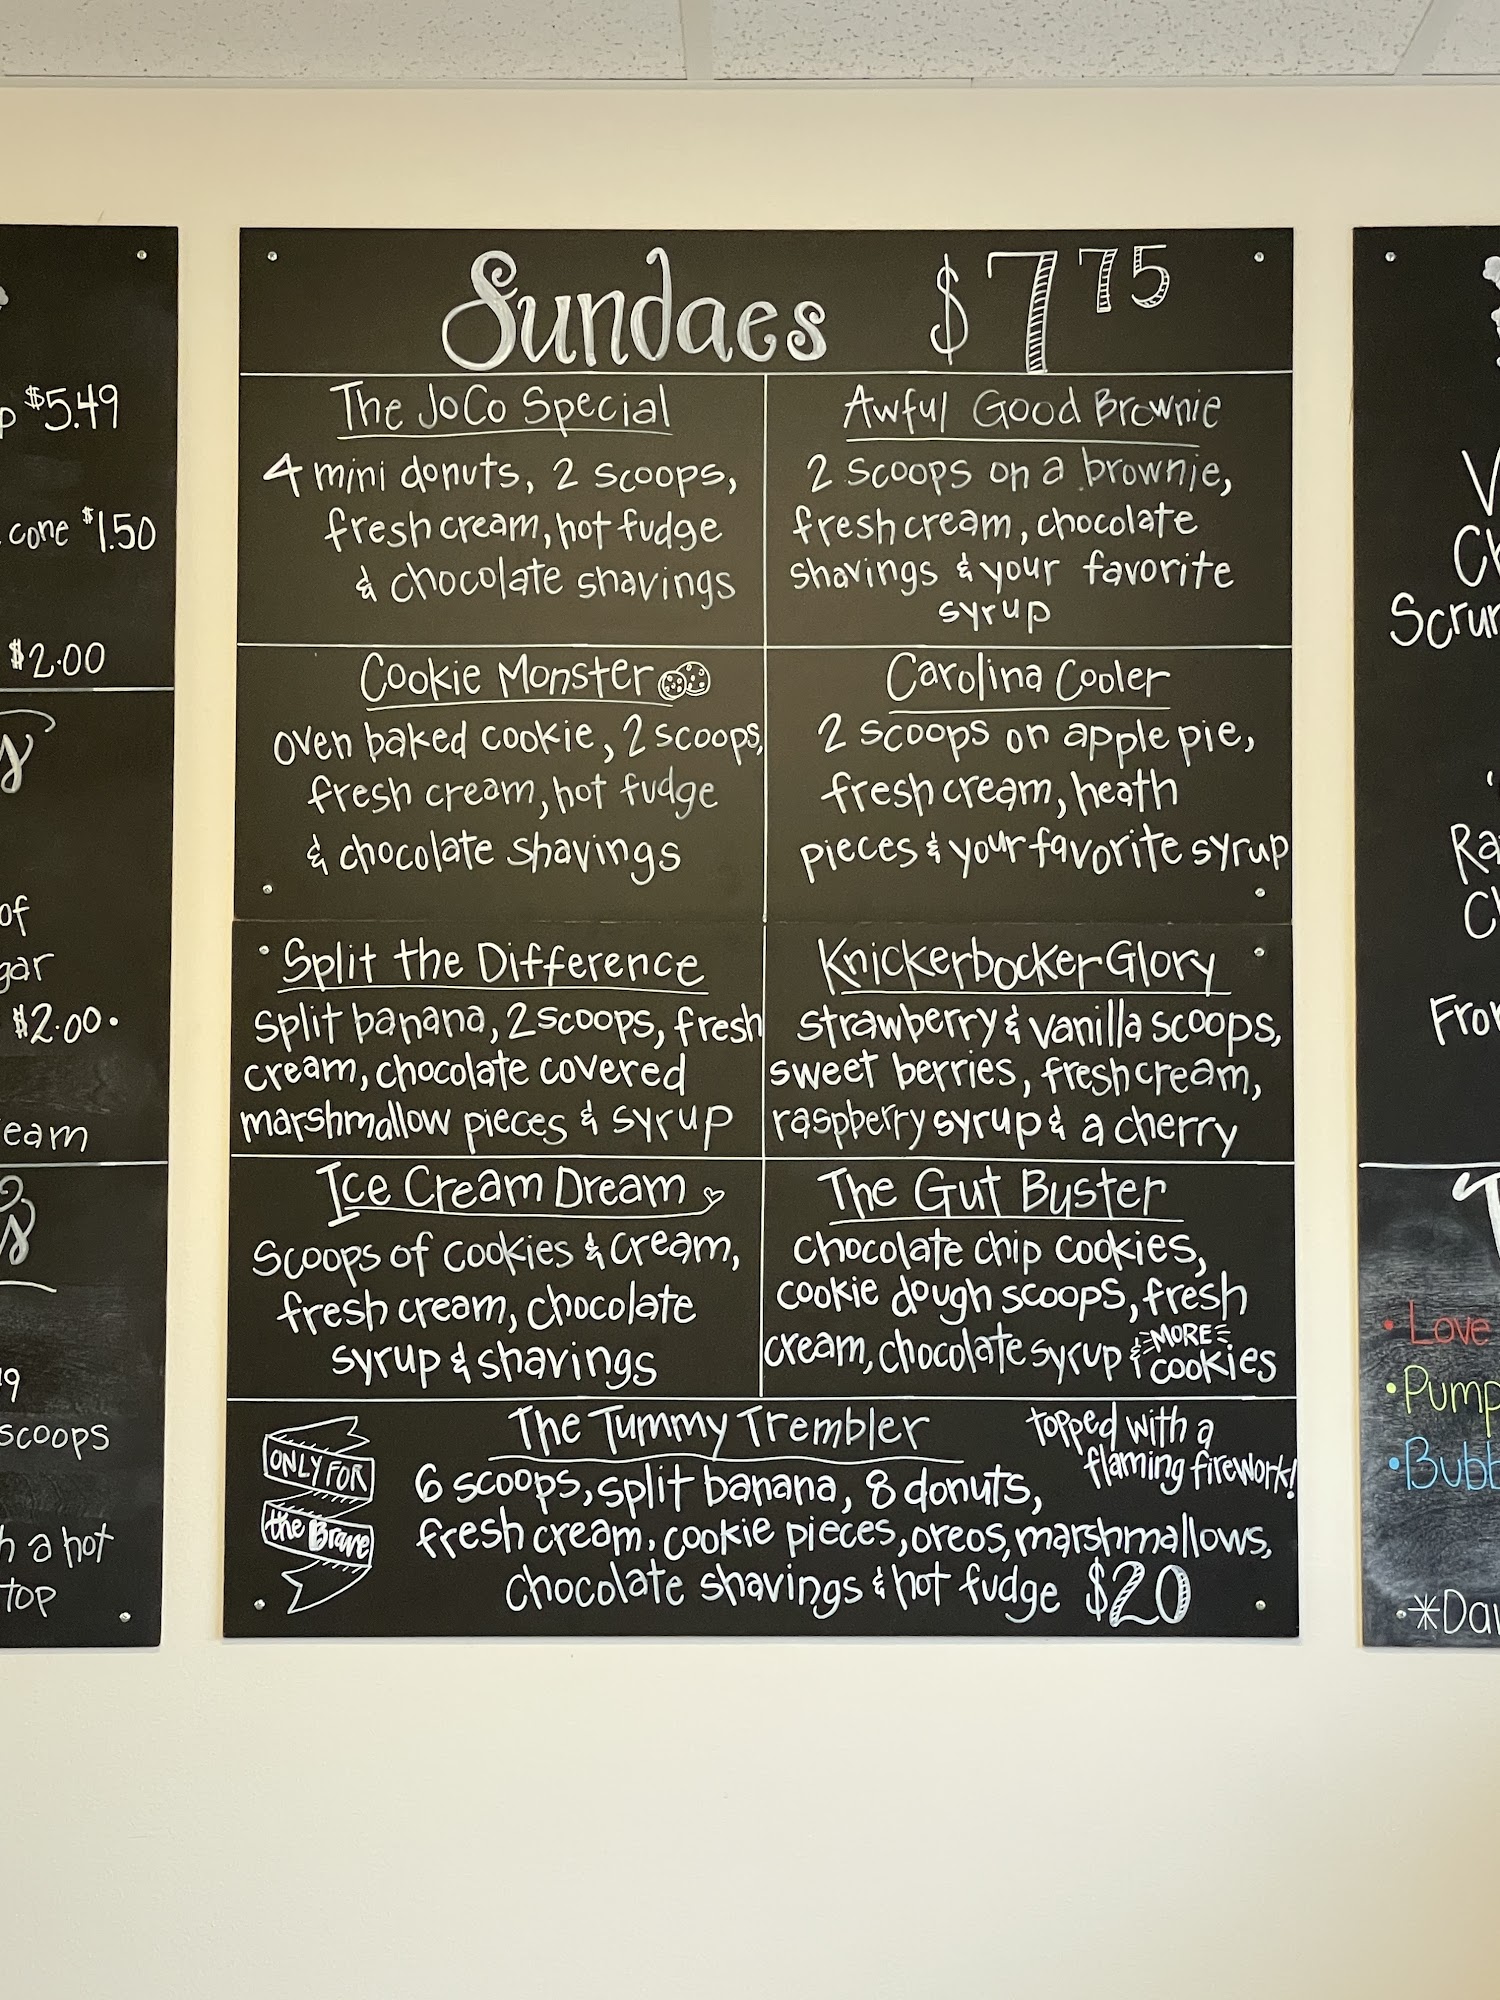 $5.49
cone $1.50
$2.00
of
$2.00.
scoops
a hot
top
Sundaes $7 75
The JoCo Special
4 mini donuts, 2 scoops,
fresh cream, hot fudge
& chocolate shavings
Awful Good Brownie
2 scoops on a brownie,
fresh cream, chocolate
shavings & your favorite
syrup
Cookie Monster
oven baked cookie, 2 scoops,
fresh cream, hot fudge
& chocolate shavings
Carolina Cooler
2 scoops on apple pie,
fresh cream, heath
pieces & your favorite syrup
Split the Difference
split banana, 2 scoops, fresh
cream, chocolate covered
marshmallow pieces & syrup
Knickerbocker Glory
strawberry & vanilla scoops,
sweet berries, fresh cream,
raspberry syrup & a cherry
Ice Cream Dream
Scoops of cookies & cream,
fresh cream, chocolate
syrup & shavings
The Gut Buster
chocolate chip cookies,
cookie dough scoops, fresh
cream, chocolate syrup & MORE
cookies
ONLY FOR
the Brave
The Tummy Trembler
topped with a
flaming firework!
6 scoops, split banana, 8 donuts,
fresh cream, cookie pieces, oreos, marshmallows,
chocolate shavings & hot fudge $20
• Love